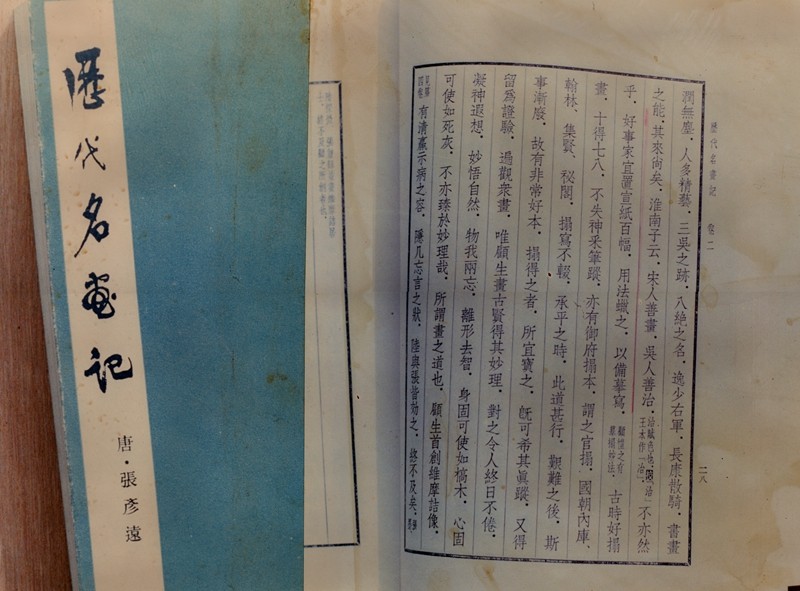 歷代名畫記
唐·張彥遠
歷代名畫記 卷二
二八
潤無塵．人多精藝．三吳之跡．八絕之名．逸少右軍．長康散騎．書畫
之能．其來尚矣．淮南子云．宋人善畫．吳人善治．治賦色也．不亦然
乎．好事家宜置宣紙百幅．用法蠟之．以備摹寫．顧愷之有摹搨妙法．古時好搨
畫．十得七八．不失神采筆蹤．亦有御府搨本．謂之官搨．國朝內庫．
翰林．集賢．秘閣．搨寫不輟．承平之時．此道甚行．艱難之後．斯
事漸廢．故有非常好本．搨得之者．所宜寶之．旣可希其眞蹤．又得
留爲證驗．遍觀衆畫．唯顧生畫古賢得其妙理．對之令人終日不倦．
凝神遐想．妙悟自然．物我兩忘．離形去智．身固可使如槁木．心固
可使如死灰．不亦臻於妙理哉．所謂畫之道也．顧生首創維摩詰像．
有清羸示病之容．隱几忘言之狀．陸與張皆効之．終不及矣．